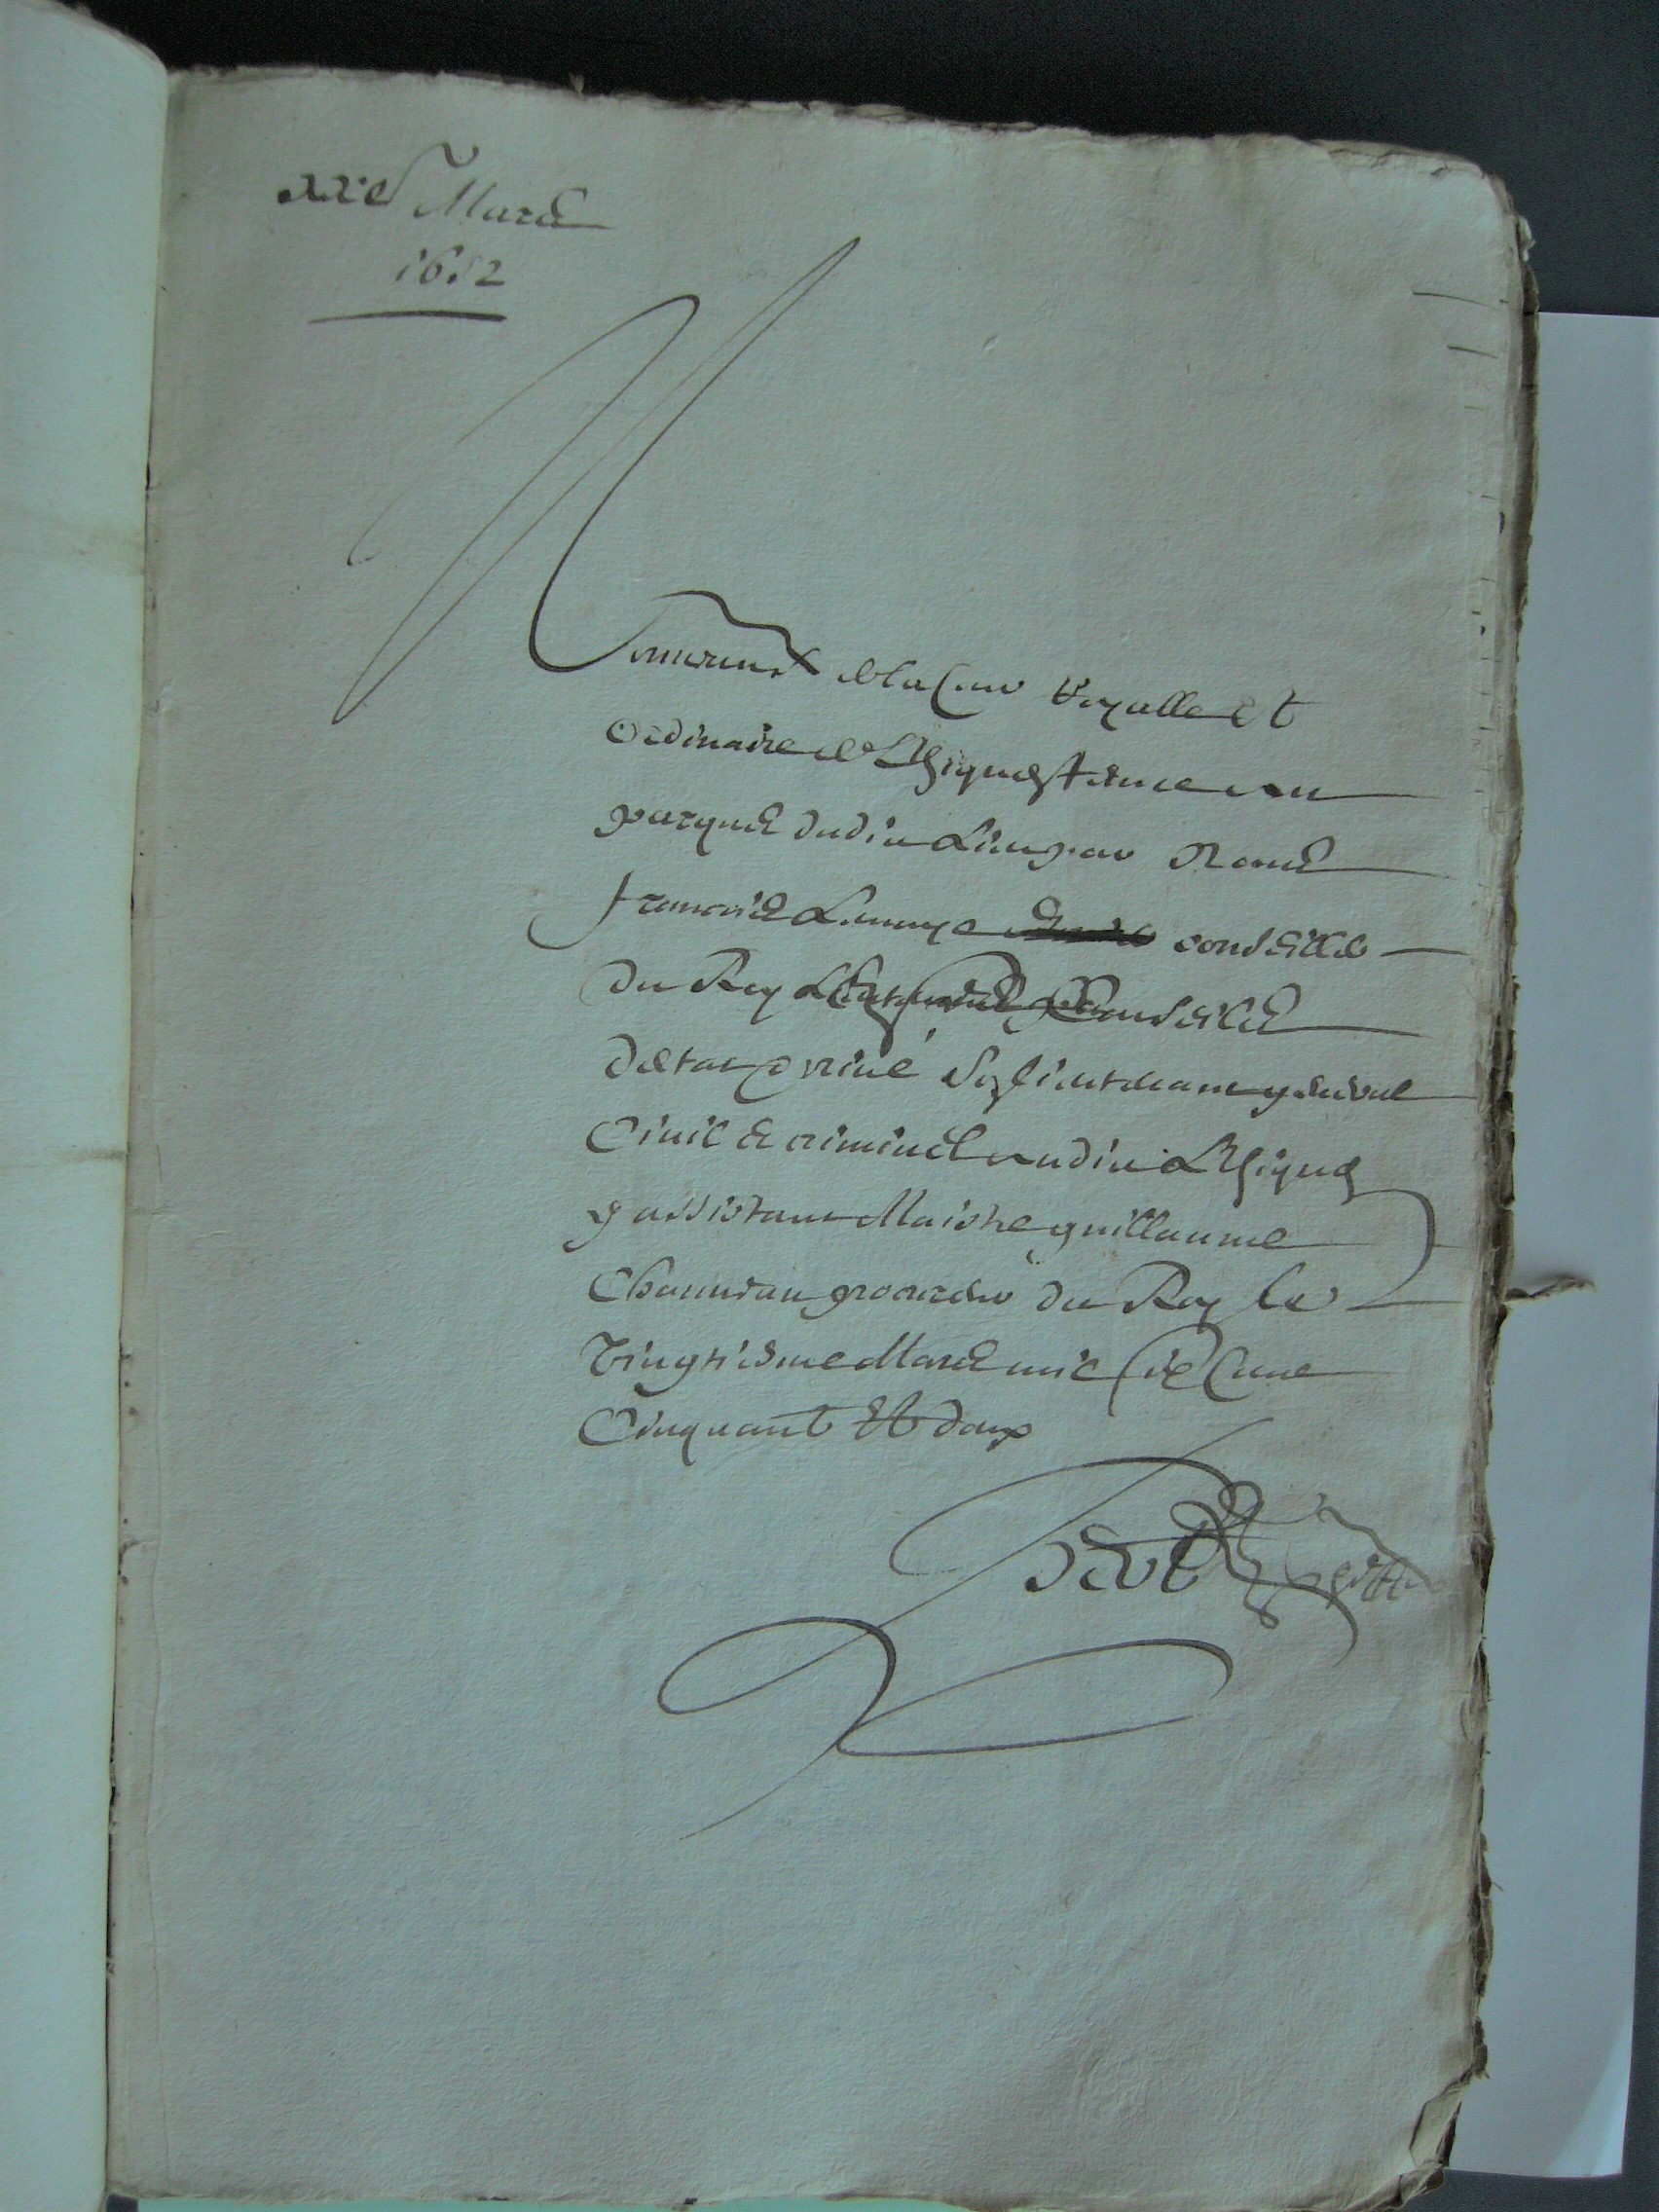 xxe Mars
1652
de la Cour Royalle et
Ordinaire de Lesignen tenue au
parquet dudit Lieu par Nous
francois Lemaye conseiller
du Roy Conseiller
destat privé Son lieutenant general
Civil et criminel audit Lesignen
y assistant Maistre guillaume
Chauveau procureur du Roy le
Vingtiesme Mars mil six Cens
Cinquante Et deux